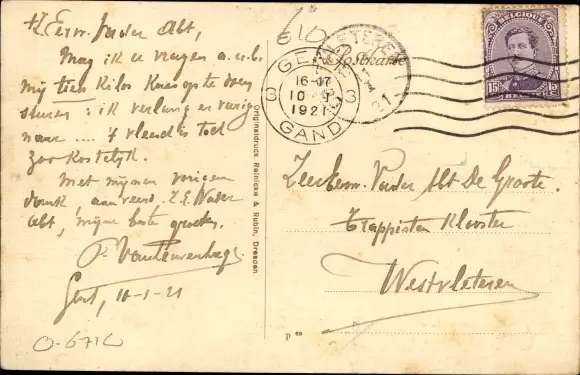 Z. Eerw. Vader Abt,
Mag ik u vragen a.u.b.
mij tien kilos kaas op te doen
sturen: ik verlang er
naar .... 't vleesch is toch
zoo kostelijk.
Met mijnen vorigen
dank aanveerd, Z.E. Vader
Abt, mijne beste groeten.
P.
Gent, 10-1-21
O-671C
Originaldruck Reinicke & Rubin, Dresden
GENT
16-17
10
1921
GAND
3
3
Postkarte
21
BELGIQUE
15
15
Zeereerw. Vader Abt De Groote.
Trappisten Klooster
Westvleteren
P 68